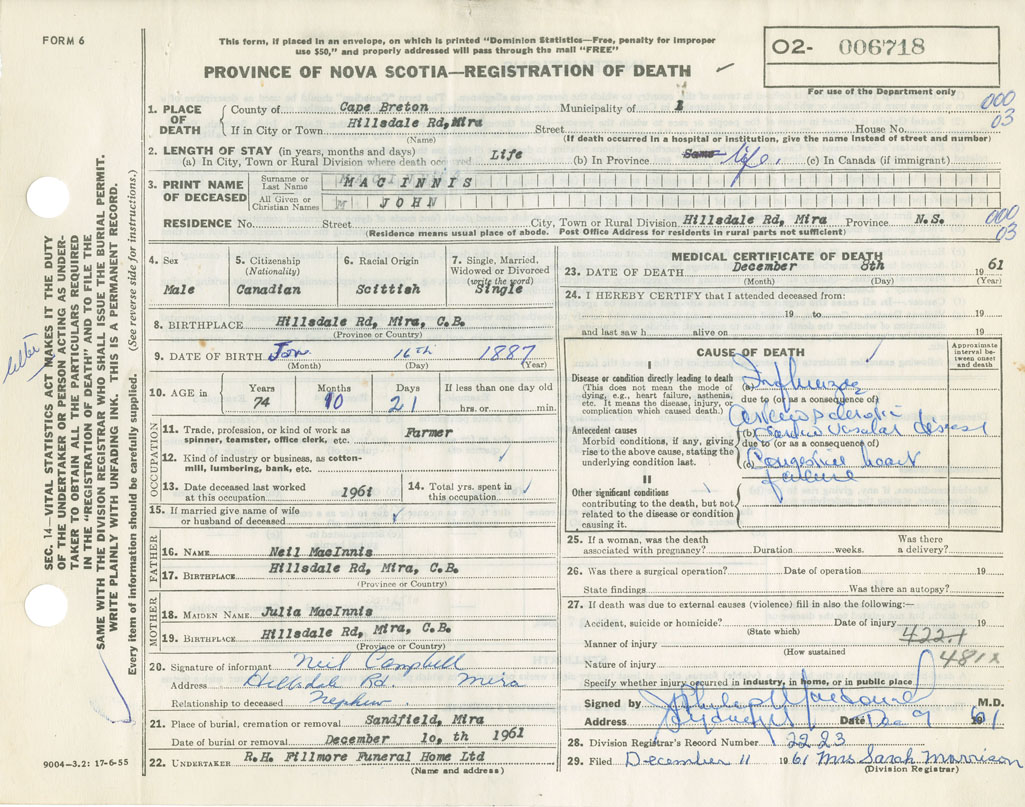 FORM 6
This form, if placed in an envelope, on which is printed "Dominion Statistics—Free, penalty for improper
use $50," and properly addressed will pass through the mail "FREE"
PROVINCE OF NOVA SCOTIA—REGISTRATION OF DEATH
02- 006718
For use of the Department only
1. PLACE OF DEATH { County of Cape Breton Municipality of
If in City or Town Hillsdale Rd, Mira Street House No.
(Name) (If death occurred in a hospital or institution, give the name instead of street and number)
000
03
2. LENGTH OF STAY (in years, months and days)
(a) In City, Town or Rural Division where death occurred Life (b) In Province Same life. (c) In Canada (if immigrant)
3. PRINT NAME OF DECEASED
Surname or Last Name MACINNIS
All Given or Christian Names JOHN
RESIDENCE No. Street City, Town or Rural Division Hillsdale Rd, Mira Province N.S.
(Residence means usual place of abode. Post Office Address for residents in rural parts not sufficient)
000
03
4. Sex
Male
5. Citizenship
(Nationality)
Canadian
6. Racial Origin
Scittish
7. Single, Married,
Widowed or Divorced
(write the word)
Single
8. BIRTHPLACE Hillsdale Rd, Mira, C.B.
(Province or Country)
9. DATE OF BIRTH Jan 16th 1887
(Month) (Day) (Year)
10. AGE in Years 74 Months 10 Days 21 If less than one day old
hrs. or min.
OCCUPATION
11. Trade, profession, or kind of work as
spinner, teamster, office clerk, etc. Farmer
12. Kind of industry or business, as cotton-
mill, lumbering, bank, etc.
13. Date deceased last worked
at this occupation 1961
14. Total yrs. spent in
this occupation
15. If married give name of wife
or husband of deceased
FATHER
16. NAME Neil MacInnis
17. BIRTHPLACE Hillsdale Rd, Mira, C.B.
(Province or Country)
MOTHER
18. MAIDEN NAME Julia MacInnis
19. BIRTHPLACE Hillsdale Rd, Mira, C.B.
(Province or Country)
20. Signature of informant Neil Campbell
Address Hillsdale Rd. Mira
Relationship to deceased Nephew.
21. Place of burial, cremation or removal Sandfield, Mira
Date of burial or removal December 10, th 1961
22. UNDERTAKER R.H. Fillmore Funeral Home Ltd
(Name and address)
MEDICAL CERTIFICATE OF DEATH
23. DATE OF DEATH December 8th 1961
(Month) (Day) (Year)
24. I HEREBY CERTIFY that I attended deceased from:
19 to 19
and last saw h alive on 19
CAUSE OF DEATH
Approximate
interval be-
tween onset
and death
I
Disease or condition directly leading to death
(This does not mean the mode of
dying, e.g., heart failure, asthenia,
etc. It means the disease, injury, or
complication which caused death.)
(a) Influenza
due to (or as a consequence of)
Antecedent causes
Morbid conditions, if any, giving
rise to the above cause, stating the
underlying condition last.
Arteriosclerotic
(b) Cardio Vascular disease
due to (or as a consequence of)
(c) Congestive heart
failure
II
Other significant conditions
contributing to the death, but not
related to the disease or condition
causing it.
25. If a woman, was the death
associated with pregnancy? Duration weeks. Was there
a delivery?
26. Was there a surgical operation? Date of operation 19
State findings Was there an autopsy?
27. If death was due to external causes (violence) fill in also the following:—
Accident, suicide or homicide? Date of injury 19
(State which)
422.1
Manner of injury
(How sustained
481x
Nature of injury
Specify whether injury occurred in industry, in home, or in public place
Signed by M.D.
Address Sydney Date Dec 9 1961
28. Division Registrar's Record Number 2223
29. Filed December 11 1961 Mrs Sarah Morrison
(Division Registrar)
9004-3.2: 17-6-55
letter
SEC. 14—VITAL STATISTICS ACT MAKES IT THE DUTY
OF THE UNDERTAKER OR PERSON ACTING AS UNDER-
TAKER TO OBTAIN ALL THE PARTICULARS REQUIRED
IN THE "REGISTRATION OF DEATH" AND TO FILE THE
SAME WITH THE DIVISION REGISTRAR WHO SHALL ISSUE THE BURIAL PERMIT.
WRITE PLAINLY WITH UNFADING INK. THIS IS A PERMANENT RECORD.
Every item of information should be carefully supplied. (See reverse side for instructions.)